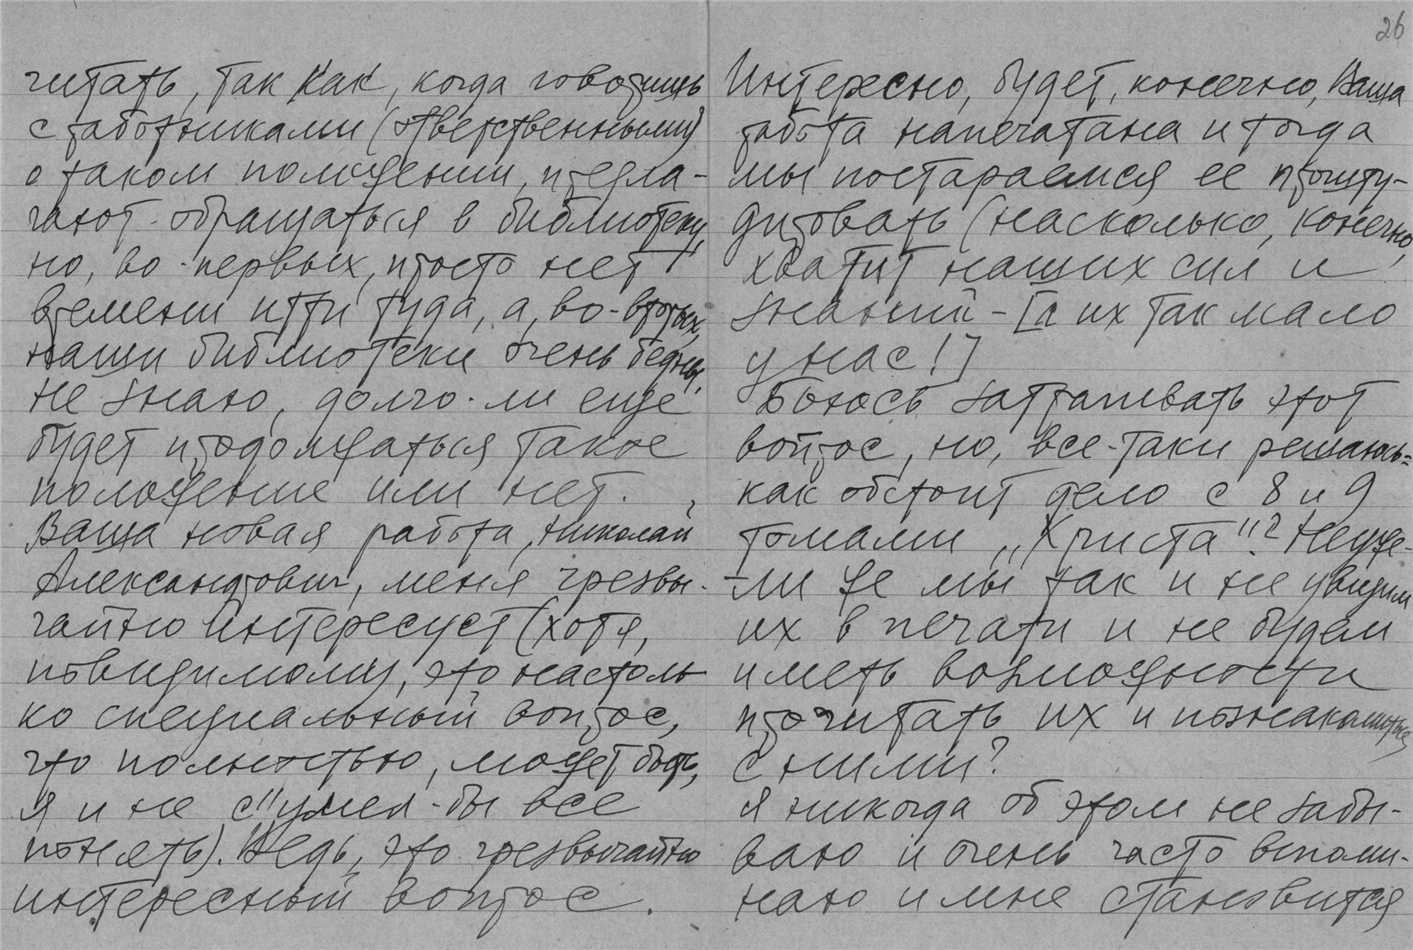 читать, так как, когда говоришь
с работниками (ответственными)
о таком положении, предла-
гают обращаться в библиотеку,
но, во-первых, просто нет
времени итти туда, а, во-вторых,
наши библиотеки очень бедны.
Не знаю, долго-ли еще
будет продолжаться такое
положение или нет.
Ваша новая работа, Николай
Александрович, меня чрезвы-
чайно интересует (хотя,
повидимому, это настоль
ко специальный вопрос,
что полностью, может быть,
я и не с"умел-бы все
понять). Ведь, это чрезвычайно
интересный вопрос.
26
Интересно, будет, конечно, Ваша
работа напечатана и тогда
мы постараемся ее прошту-
дировать (насколько, конечно,
хватит наших сил и
знаний - [а их так мало
у нас!]
Боюсь затрагивать этот
вопрос, но, все-таки решаюсь:
как обстоит дело с 8 и 9
томами „Христа"? Неуже-
-ли же мы так и не увидим
их в печати и не будем
иметь возможности
прочитать их и познакомиться
с ними?
Я никогда об этом не забы-
ваю и очень часто вспоми-
наю и мне становится